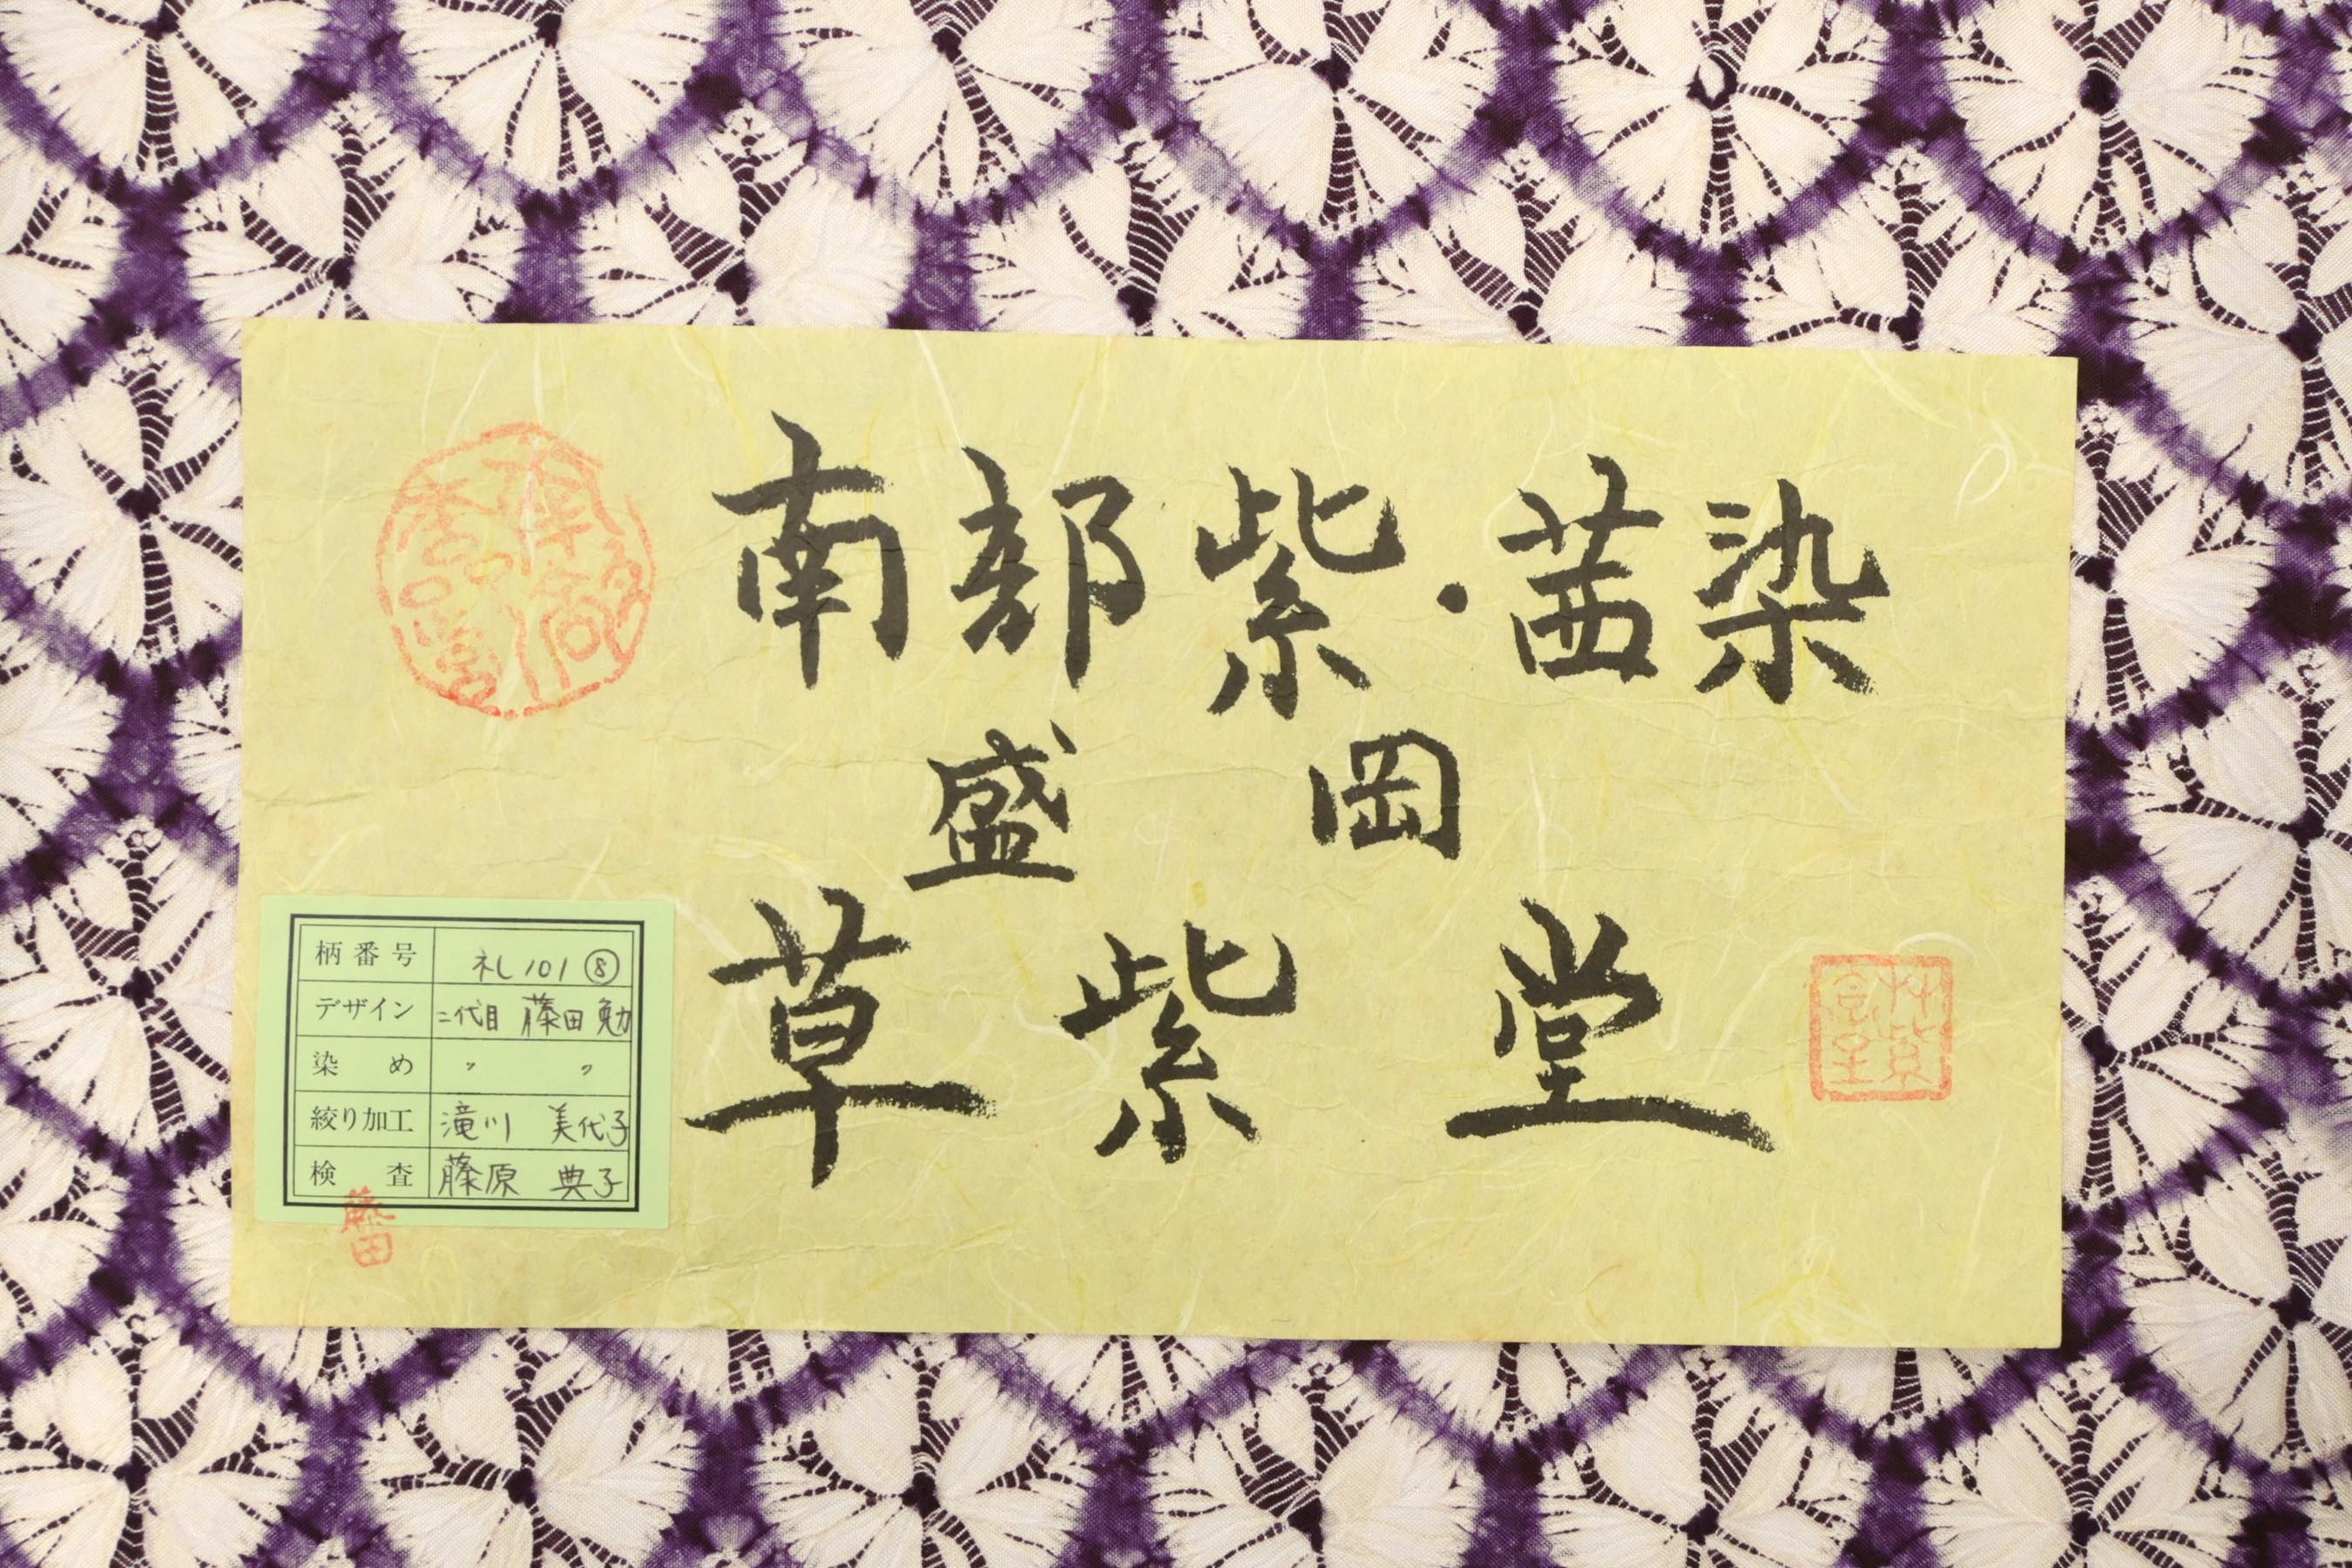 南部紫・茜染
盛岡
草紫堂
柄番号 礼101⑧
デザイン 二代目 藤田 勉
染め 〃 〃
絞り加工 滝川 美代子
検査 藤原 典子
藤田